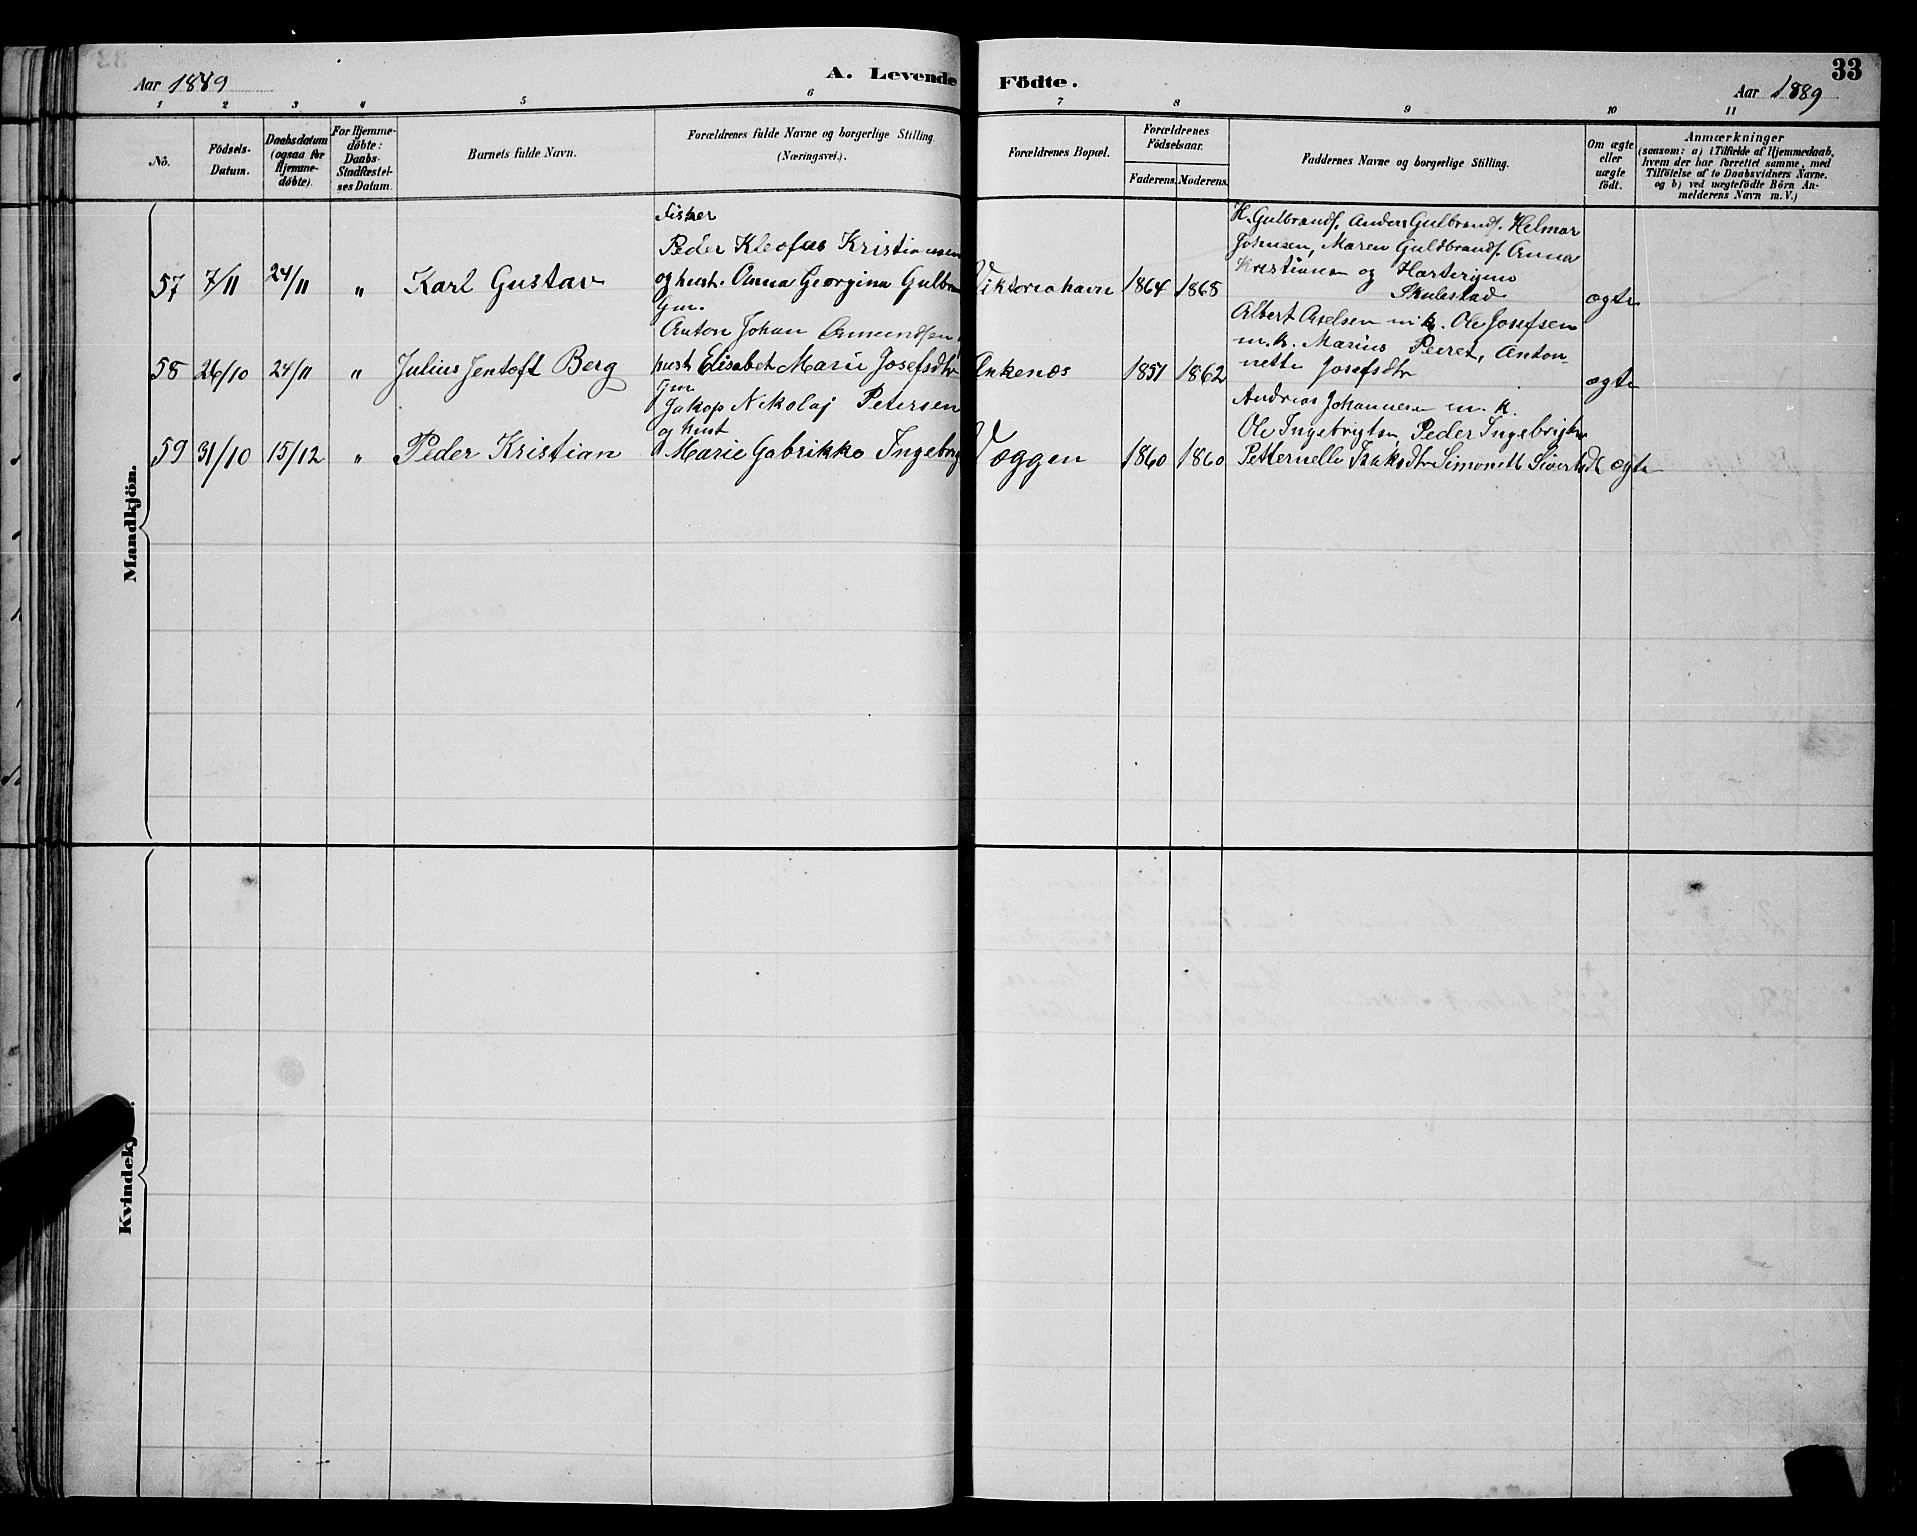 Aar 1889
A. Levende Födte.
Aar 1889
33
1 2 3 4 5 6 7 8 9 10 11
No.
Födsels-
Datum.
Daabsdatum
(ogsaa for
Hjemme-
döbte).
For Hjemme-
döbte:
Daabs-
Stadfæstel-
ses Datum.
Barnets fulde Navn.
Forældrenes fulde Navne og borgerlige Stilling
(Næringsvei).
Forældrenes Bopæl.
Forældrenes
Födselsaar.
Faderens. Moderens.
Faddernes Navne og borgerlige Stilling.
Om ægte
eller
uægte
födt.
Anmærkninger
(saasom: a) i Tilfælde af Hjemmedaab,
hvem der har forrettet samme, med
Tilföielse af to Daabsvidners Navne.
og b) ved uægtefödte Börn An-
melderens Navn m. V.)
Mandkjön.
57 7/11 24/11 " Karl Gustav
Fisker
Peder Kleofas Kristiansen
og hust. Anna Georgina Gulbr
Viktoriahavn 1864 1868
H. Gulbrands. Anders Gulbrands. Helmar
Johnsen, Maren Guldbrands. Anna
Kristiansen og
Skulestad
ægte
58 26/10 24/11 " Julius Jentoft Berg
Gm.
Anton Johan Amundsen
hust Elisabet Marie Josefsdtr
Ankenæs 1851 1862
Albert Axelsen m. k. Ole Josefsen
m. k. Marius Anton-
nette Josefsdtr
ægte
59 31/10 15/12 " Peder Kristian
Gm
Jakop Nikolaj Petersen
og hust
Marie Gabrikka Ingebrig
Væggen 1860 1860
Andreas Johannesen m. k.
Ole Ingebrigtsen, Peder Ingebrigtsen
Petternelle Isaksdtr Simonette Sivertsdt
ægte
Kvindekj